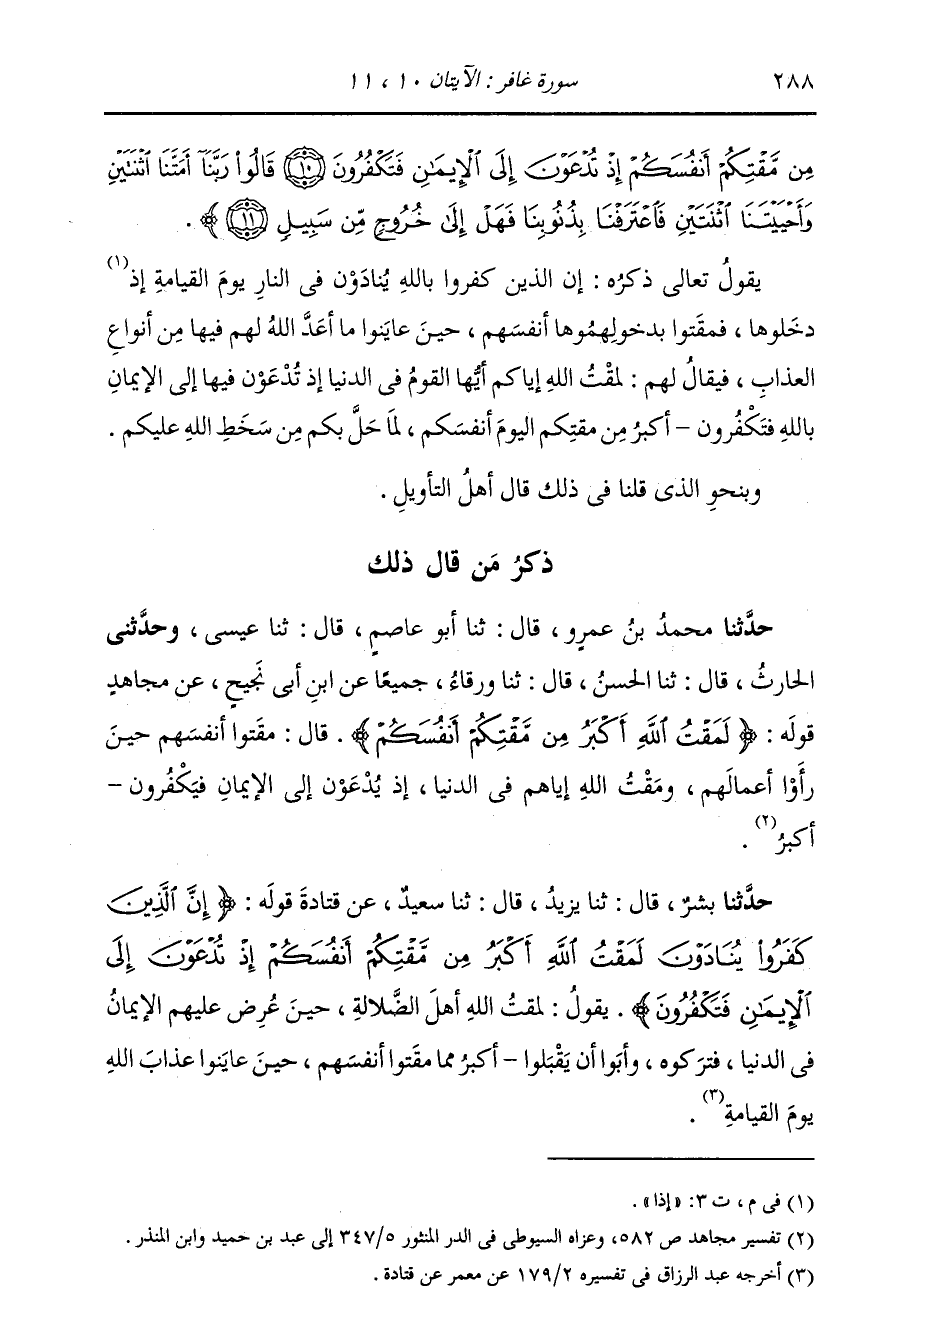 ٢٨٨ سورة غافر : الآيتان ١٠ ، ١١
مِن مَّقْتِكُمْ أَنفُسَكُمْ إِذْ تُدْعَوْنَ إِلَى ٱلْإِيمَٰنِ فَتَكْفُرُونَ ﴿١٠﴾ قَالُوا۟ رَبَّنَآ أَمَتَّنَا ٱثْنَتَيْنِ
وَأَحْيَيْتَنَا ٱثْنَتَيْنِ فَٱعْتَرَفْنَا بِذُنُوبِنَا فَهَلْ إِلَىٰ خُرُوجٍ مِّن سَبِيلٍ ﴿١١﴾ ﴾ .
يقولُ تعالى ذكرُه : إن الذين كفروا باللهِ يُنادَوْن فى النارِ يومَ القيامةِ إذ(١)
دخَلوها ، فمقَتوا بدخولِهمُوها أنفسَهم ، حينَ عايَنوا ما أعَدَّ اللهُ لهم فيها مِن أنواعِ
العذابِ ، فيقالُ لهم : لمقْتُ اللهِ إياكم أيُّها القومُ فى الدنيا إذ تُدْعَوْن فيها إلى الإيمانِ
باللهِ فتَكْفُرون – أكبرُ مِن مقتِكم اليومَ أنفسَكم ، لمَا حَلَّ بكم مِن سَخَطِ اللهِ عليكم .
وبنحوِ الذى قلنا فى ذلك قال أهلُ التأويلِ .
ذكرُ مَن قال ذلك
حدَّثنا محمدُ بنُ عمرٍو ، قال : ثنا أبو عاصمٍ ، قال : ثنا عيسى ، وحدَّثنى
الحارثُ ، قال : ثنا الحسنُ ، قال : ثنا ورقاءُ ، جميعًا عن ابنِ أبى نَجيحٍ ، عن مجاهدٍ
قولَه : ﴿ لَمَقْتُ ٱللَّهِ أَكْبَرُ مِن مَّقْتِكُمْ أَنفُسَكُمْ ﴾ . قال : مقَتوا أنفسَهم حينَ
رأَوْا أعمالَهم ، ومَقْتُ اللهِ إياهم فى الدنيا ، إذ يُدْعَوْن إلى الإيمانِ فيَكْفُرون –
أكبرُ(٢) .
حدَّثنا بشرٌ ، قال : ثنا يزيدُ ، قال : ثنا سعيدٌ ، عن قتادةَ قولَه : ﴿ إِنَّ ٱلَّذِينَ
كَفَرُوا۟ يُنَادَوْنَ لَمَقْتُ ٱللَّهِ أَكْبَرُ مِن مَّقْتِكُمْ أَنفُسَكُمْ إِذْ تُدْعَوْنَ إِلَى
ٱلْإِيمَٰنِ فَتَكْفُرُونَ ﴾ . يقولُ : لمقتُ اللهِ أهلَ الضَّلالةِ ، حينَ عُرِض عليهم الإيمانُ
فى الدنيا ، فترَكوه ، وأبَوا أن يَقْبَلوا – أكبرُ مما مقَتوا أنفسَهم ، حينَ عايَنوا عذابَ اللهِ
يومَ القيامةِ(٣) .
(١) فى م ، ت ٣ : «إذا» .
(٢) تفسير مجاهد ص ٥٨٢، وعزاه السيوطى فى الدر المنثور ٣٤٧/٥ إلى عبد بن حميد وابن المنذر .
(٣) أخرجه عبد الرزاق فى تفسيره ١٧٩/٢ عن معمر عن قتادة .